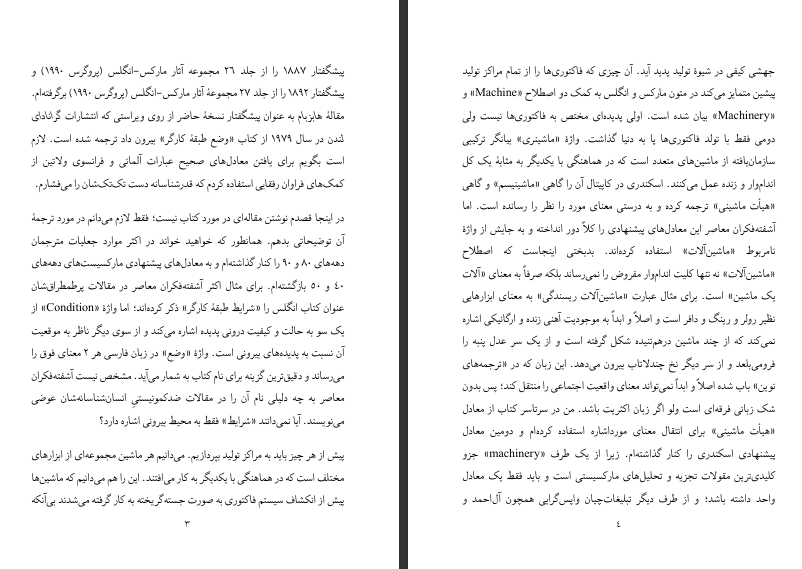 پیشگفتار ۱۸۸۷ را از جلد ۲٦ مجموعه آثار مارکس-انگلس (پروگرس ۱۹۹۰) و
پیشگفتار ۱۸۹۲ را از جلد ۲۷ مجموعهٔ آثار مارکس-انگلس (پروگرس ۱۹۹۰) برگرفته‌ام.
مقالهٔ هابزبام به عنوان پیشگفتار نسخهٔ حاضر از روی ویراستی که انتشارات گرانادای
لندن در سال ۱۹۷۹ از کتاب «وضع طبقهٔ کارگر» بیرون داد ترجمه شده است. لازم
است بگویم برای یافتن معادل‌های صحیح عبارات آلمانی و فرانسوی ولاتین از
کمک‌های فراوان رفقایی استفاده کردم که قدرشناسانه دست تک‌تک‌شان را می‌فشارم.
در اینجا قصدم نوشتن مقاله‌ای در مورد کتاب نیست؛ فقط لازم می‌دانم در مورد ترجمهٔ
آن توضیحاتی بدهم. همانطور که خواهید خواند در اکثر موارد جعلیات مترجمان
دهه‌های ۸۰ و ۹۰ را کنار گذاشته‌ام و به معادل‌های پیشنهادی مارکسیست‌های دهه‌های
٤۰ و ٥۰ بازگشته‌ام. برای مثال اکثر آشفته‌فکران معاصر در مقالات پرطمطراق‌شان
عنوان کتاب انگلس را «شرایط طبقهٔ کارگر» ذکر کرده‌اند؛ اما واژهٔ «Condition» از
یک سو به حالت و کیفیت درونی پدیده اشاره می‌کند و از سوی دیگر ناظر به موقعیت
آن نسبت به پدیده‌های بیرونی است. واژهٔ «وضع» در زبان فارسی هر ۲ معنای فوق را
می‌رساند و دقیق‌ترین گزینه برای نام کتاب به شمار می‌آید. مشخص نیست آشفته‌فکران
معاصر به چه دلیلی نام آن را در مقالات ضدکمونیستیِ انسان‌شناسانه‌شان عوضی
می‌نویسند. آیا نمی‌دانند «شرایط» فقط به محیط بیرونی اشاره دارد؟
پیش از هر چیز باید به مراکز تولید بپردازیم. می‌دانیم هر ماشین مجموعه‌ای از ابزارهای
مختلف است که در هماهنگی با یکدیگر به کار می‌افتند. این را هم می‌دانیم که ماشین‌ها
پیش از انکشاف سیستم فاکتوری به صورت جسته‌گریخته به کار گرفته می‌شدند بی‌آنکه
۳
جهشی کیفی در شیوهٔ تولید پدید آید. آن چیزی که فاکتوری‌ها را از تمام مراکز تولید
پیشین متمایز می‌کند در متون مارکس و انگلس به کمک دو اصطلاح «Machine» و
«Machinery» بیان شده است. اولی پدیده‌ای مختص به فاکتوری‌ها نیست ولی
دومی فقط با تولد فاکتوری‌ها پا به دنیا گذاشت. واژهٔ «ماشینری» بیانگر ترکیبی
سازمان‌یافته از ماشین‌های متعدد است که در هماهنگی با یکدیگر به مثابهٔ یک کل
اندام‌وار و زنده عمل می‌کنند. اسکندری در کاپیتال آن را گاهی «ماشینیسم» و گاهی
«هیأت ماشینی» ترجمه کرده و به درستی معنای مورد را نظر را رسانده است. اما
آشفته‌فکران معاصر این معادل‌های پیشنهادی را کلاً دور انداخته و به جایش از واژهٔ
نامربوط «ماشین‌آلات» استفاده کرده‌اند. بدبختی اینجاست که اصطلاح
«ماشین‌آلات» نه تنها کلیت اندام‌وار مفروض را نمی‌رساند بلکه صرفاً به معنای «آلات
یک ماشین» است. برای مثال عبارت «ماشین‌آلات ریسندگی» به معنای ابزارهایی
نظیر رولر و رینگ و دافر است و اصلاً و ابداً به موجودیت آهنی زنده و ارگانیکی اشاره
نمی‌کند که از چند ماشین درهم‌تنیده شکل گرفته است و از یک سر عدل پنبه را
فرومی‌بلعد و از سر دیگر نخ چندلاتاب بیرون می‌دهد. این زبان که در «ترجمه‌های
نوین» باب شده اصلاً و ابداً نمی‌تواند معنای واقعیت اجتماعی را منتقل کند؛ پس بدون
شک زبانی فرقه‌ای است ولو اگر زبان اکثریت باشد. من در سرتاسر کتاب از معادل
«هیأت ماشینی» برای انتقال معنای مورداشاره استفاده کرده‌ام و دومین معادل
پیشنهادی اسکندری را کنار گذاشته‌ام. زیرا از یک طرف «machinery» جزو
کلیدی‌ترین مقولات تجزیه و تحلیل‌های مارکسیستی است و باید فقط یک معادل
واحد داشته باشد؛ و از طرف دیگر تبلیغات‌چیان واپس‌گرایی همچون آل‌احمد و
٤